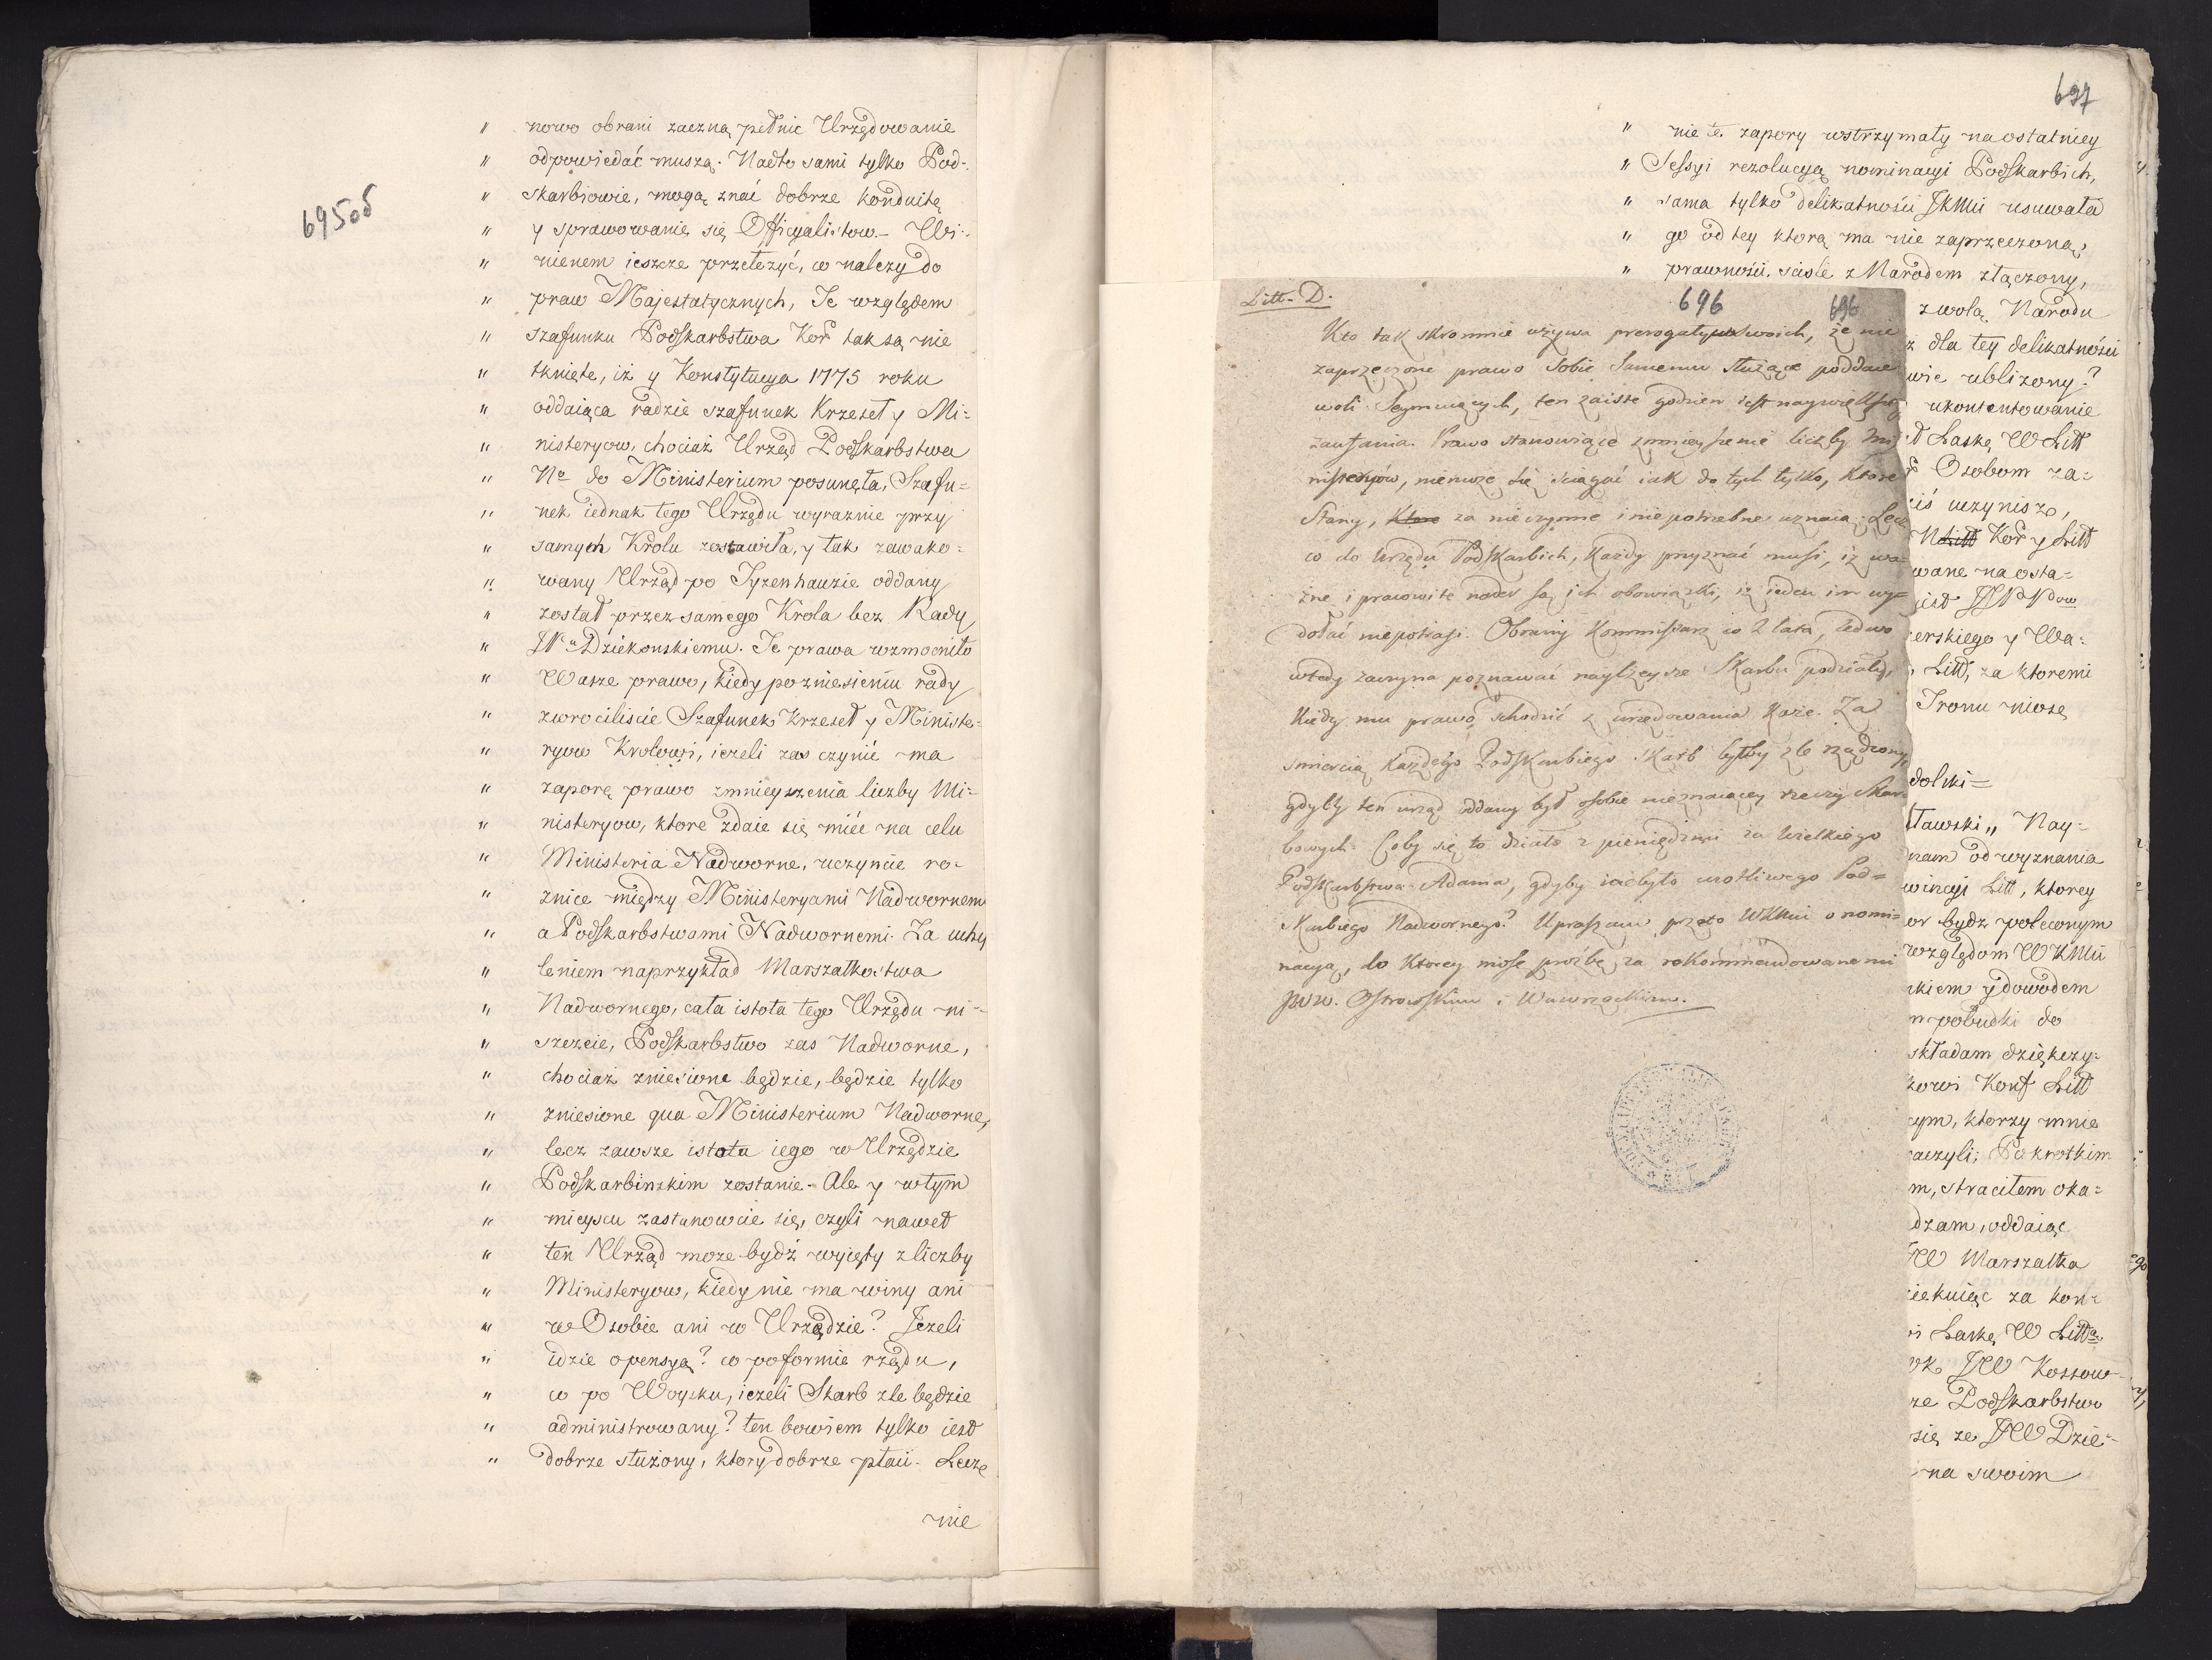 695od
" nowo obrani zaczną pełnic Urzędowanie
" odpowiedać muszą. Nadto sami tylko Pod-
" skarbiowie, mogą znać dobrze konduitę
" y sprawowanie się Officyalistow. Wi-
" nienem ieszcze przełożyć, co nalezy do
" praw Majestatycznych, Te względem
" szafunku Podskarbstwa Kor tak są nie
" tknięte, iż y Konstytucya 1775 roku
" oddaiąca radzie szafunek Krzeseł y Mi=
" nisteryow, chociaż Urząd Podskarbstwa
" Nо do Ministerium posunęła, Szafu=
" nek iednak tego Urzędu wyraznie przy
" samych Krolu zostawiła, y tak zawako=
" wany Urząd po Tyzenhauzie oddany
" został przez samego Krola bez Rady
" Dziekonskiemu. Te prawa wzmocniło
" Wasze prawo, kiedy po zniesieniu rady
" zwrociliscie Szafunek Krzeseł y Ministe=
" ryow Krolowi, iezeli zas czynić ma
" zaporę prawo zmnieyszenia liczby Mi=
" nisteryow, ktore zdaie się mieć na celu
" Ministeria Nadworne, uczyncie ro-
" znice między Ministeryami Nadwornem
" a Podskarbstwami Nadwornemi. Za uchy
" leniem naprzykład Marszałkostwa
" Nadwornego, cała istota tego Urzędu ni-
" szczeie, Podskarbstwo zas Nadworne,
" chociaż zniesione będzie, będzie tylko
" zniesione qua Ministerium Nadworne,
" lecz zawsze istota iego w Urzędzie
" Podskarbinskim zostanie. Ale y w tym
" mieyscu zastanowcie się, czyli nawet
" ten Urząd moze bydź wyięty z liczby
" Ministeryow, kiedy nie ma winy ani
" w Osobie ani w Urzędzie? Jezeli
" idzie o pensyą? co po formie rządu,
" co po Woysku, iezeli Skarb zle będzie
" administrowany? ten bowiem tylko iest
" dobrze służony, ktory dobrze płaci. Lecz
nie
697
" nie te zapory wstrzymały na ostatniey
" Sessyi rezolucyą nominacyi Podskarbich,
" sama tylko delikatności JKMci usuwała
" go od tey ktorą ma nie zaprzeczoną,
" prawności. scisle z Narodem złączony,
Litt. D.
696 696
Kto tak skromnie używa prerogatyw swoich, że nie
zaprzeczone prawo Sobie Samemu służące poddaie
woli Seymuiących, ten zaiste godzien iest naywiększego
zaufania. Prawo stanowiące zmnieyszenie liczby Mi
nistrów, niemoże się ściągać iak do tych tylko, które
Stany, za nieczynne i niepotrzebne uznaią. Lecz
co do Urzędu Podskarbich, każdy przyznać musi, iż wa-
żne i pracowite nader są ich obowiązki, iż ieden im wy-
dołać niepotrafi. Obrany Kommissarz co 2 lata, ledwo
wtedy zaczyna poznawać Skarbu podziały,
kiedy mu prawo schodzić z urzędowania każe. Za
śmiercią każdego Podskarbiego Skarb byłby źle rządzony,
gdyby ten urząd oddany był osobie nieznaiącey rzeczy Skar-
bowych. Coby się to działo z pieniędzmi za Wielkiego
Podskarbstwa Adama, gdyby niebyło cnotliwego Pod=
Skarbiego Nadwornego? Upraszam przeto WKMci o nomi=
nacyą, do ktorey niosę prośbę za rekommendowanemi
JWW. Ostrowskim i Wawrzeckim.
z wolą Narodu
dla tey delikatności
ublizony?
ukontentowanie
Laskę W Litt
Osobom za=
uczynisz,
Kor y Litt
na osta=
erskiego y Wa=
Litt, za ktoremi
Tronu niosę
dolski=
ławski „ Nay-
nam od wyznania
wincyi Litt, ktorey
bydz poleconym
względom WKMci
kiem y dowodem
pobudki do
składam dziękczy-
kowi Konf Litt
cym, ktorzy mnie
aczyli; Po krotkim
m, straciłem oka=
dzam, oddaiąc
JW Marszałka
iękuiąc za kon=
Laskę W Litt
JW Kossow-
Podskarbstwo
się ze JW Dzie=
na swoim